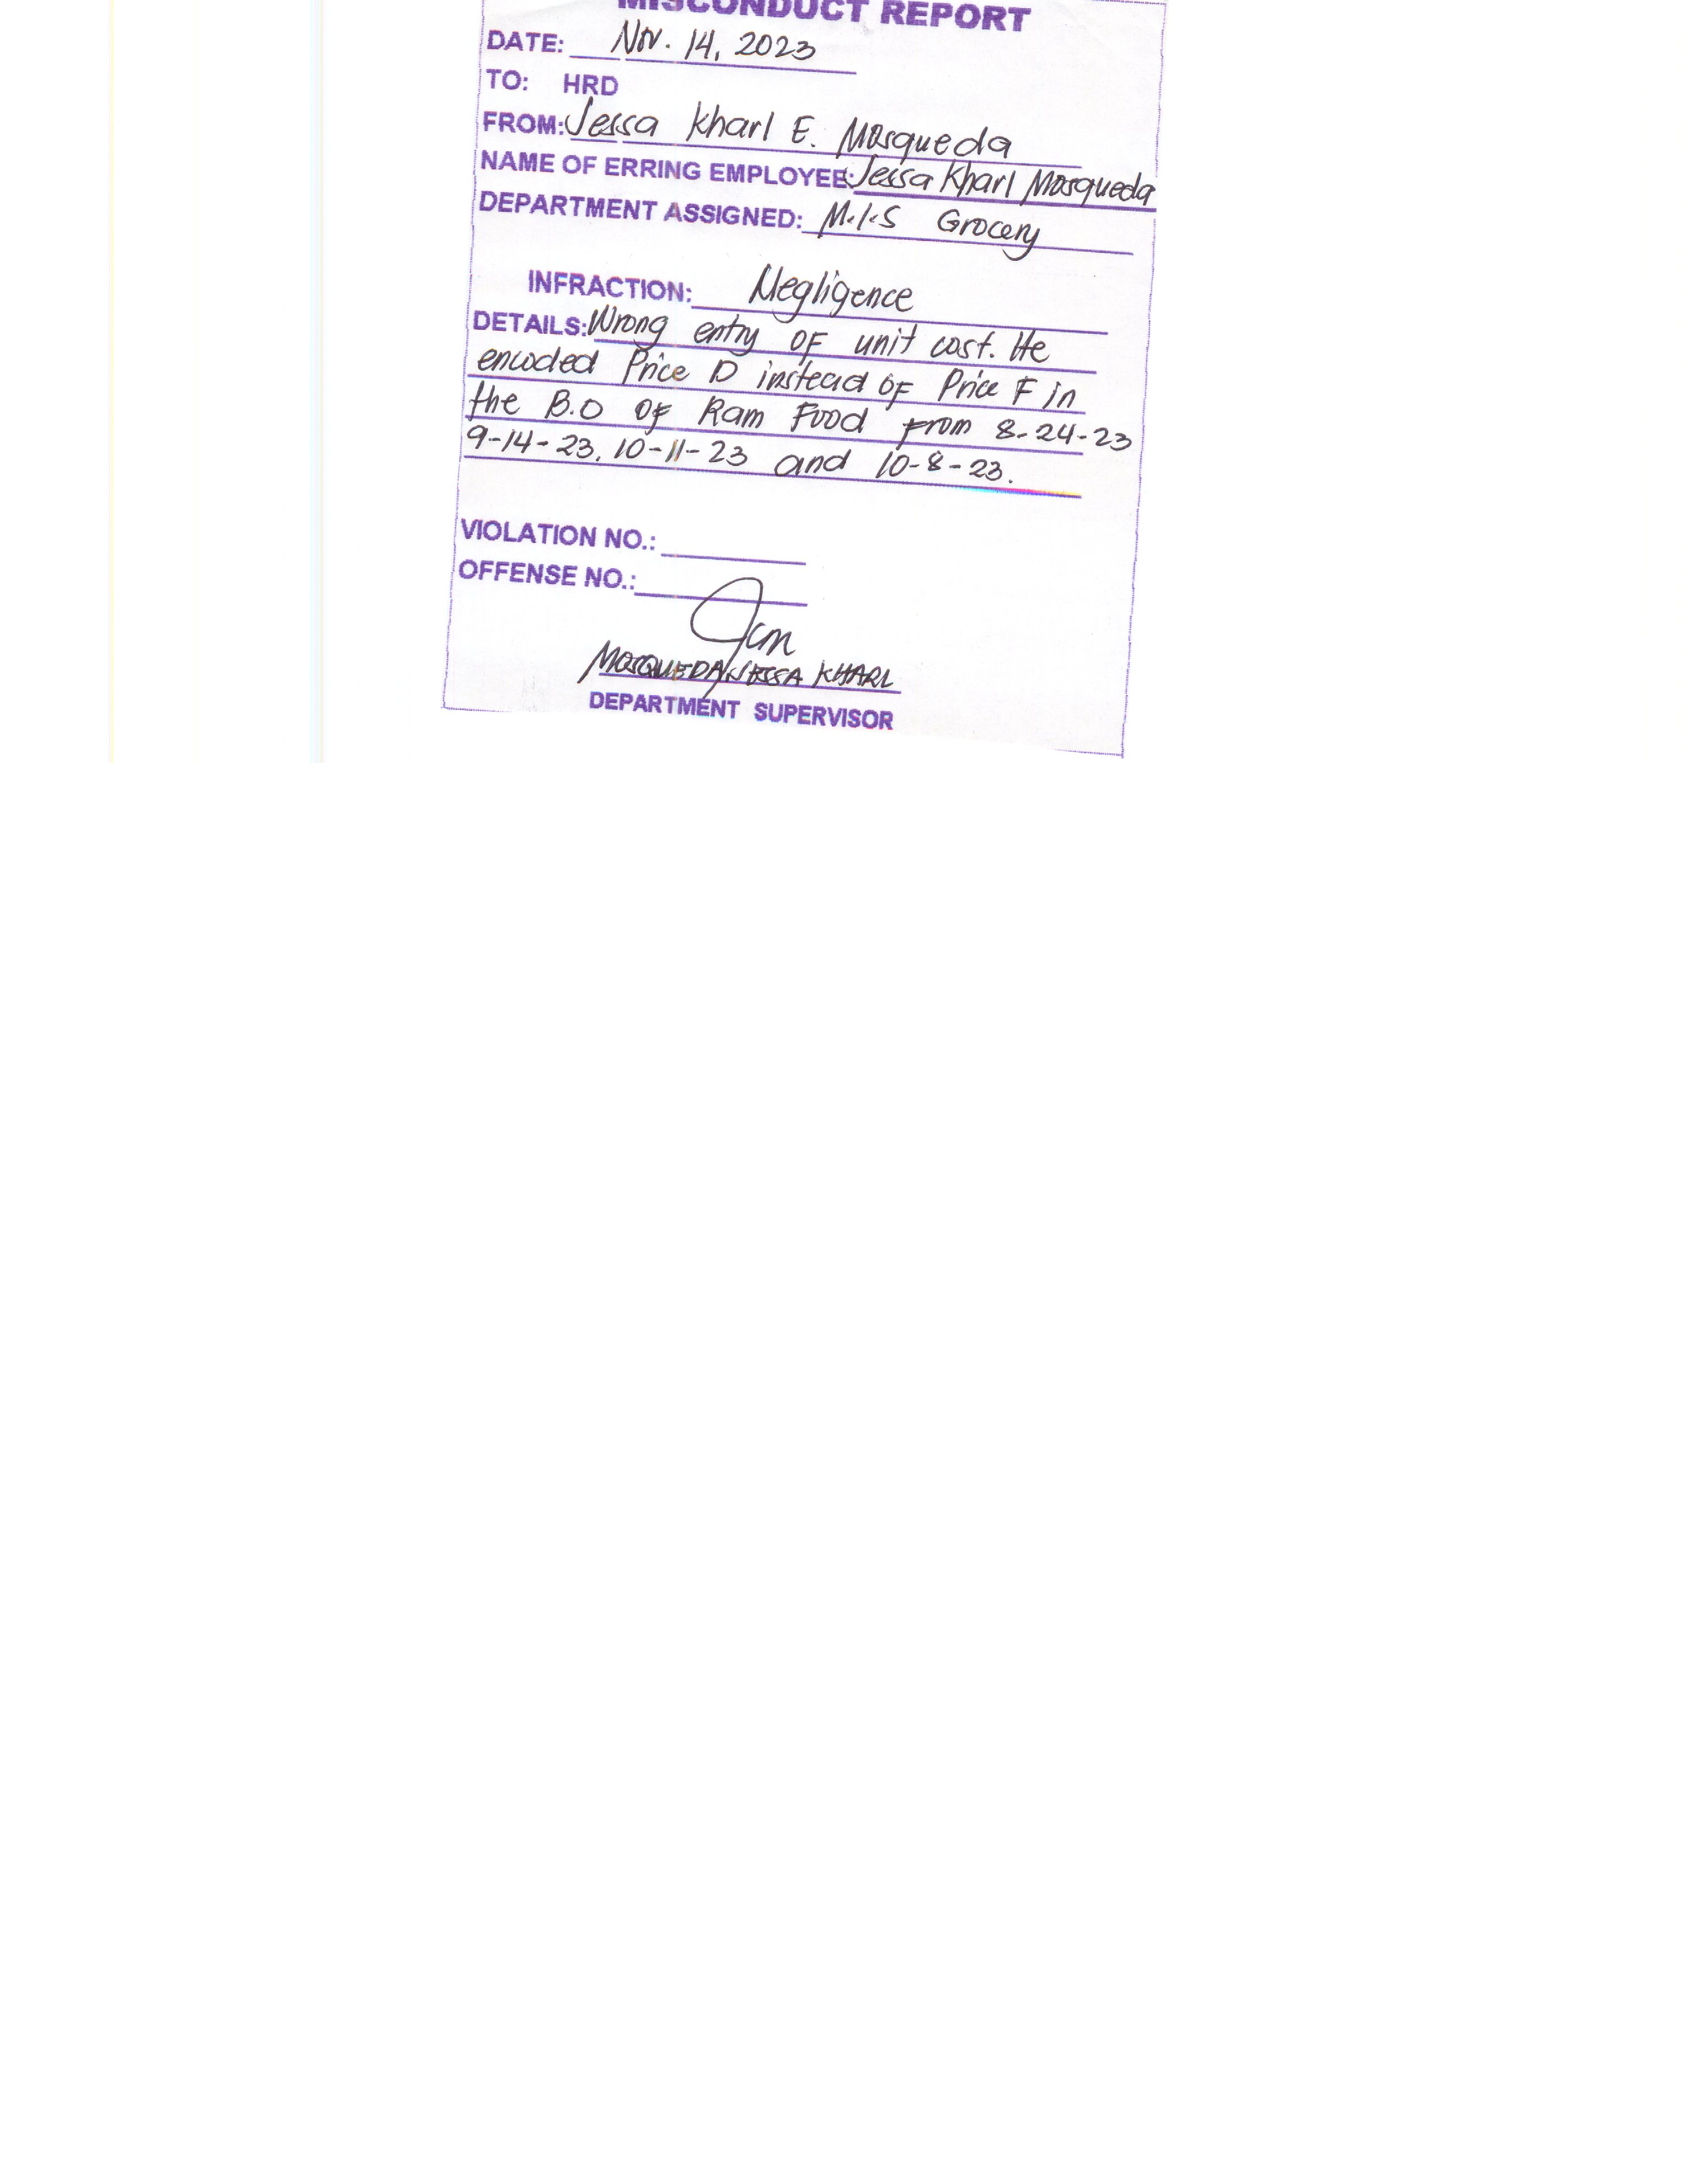 MISCONDUCT REPORT
DATE: Nov. 14, 2023
TO: HRD
FROM: Jessa Kharl E. Mosqueda
NAME OF ERRING EMPLOYEE: Jessa Kharl Mosqueda
DEPARTMENT ASSIGNED: M.I.S Grocery
INFRACTION: Negligence
DETAILS: Wrong entry of unit cost. He
encoded Price D instead of Price F in
the B.O of Ram Food from 8-24-23
9-14-23, 10-11-23 and 10-8-23.
VIOLATION NO.:
OFFENSE NO.:
Jcm
MOSQUEDA, JESSA KHARL
DEPARTMENT SUPERVISOR